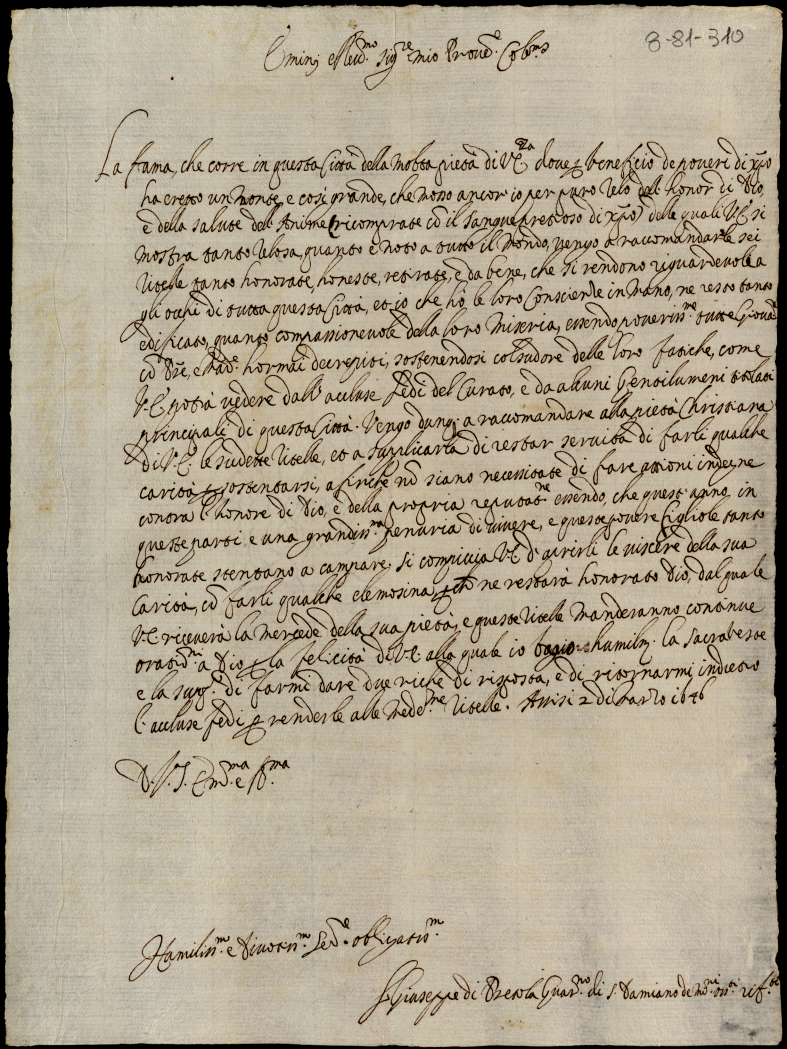 8-81-310
Emin. e Rev.mo Sig.re mio Prone. Col.mo
La fama, che corre in questa Città della molta pietà di V.E.za dove p beneficio de poveri di xpo
ha eretto un Monte, e così grande, che mono ancor io per puro zelo del honor di Dio,
e della salute del Anime (ricomprate cō il sangue pretioso di xpo) delle quali V.E. si
mostra tanto zelosa, quanto è noto a tutto il Mondo, vengo a racomandarle sei
Zitelle tanto honorate, honeste, retirate, e da bene, che si rendono riguardevole a
gli occhi di tutta questa Città, et io che hò le loro Conscienze in mano, ne resto tanto
edificato, quanto compassionevole della loro Miseria, essendo poveriss.me tutte Giovani
cō Pre, e Mad. hormai decrepiti, sostenendosi col sudore delle loro fatiche, come
V.E. potrà vedere dall' accluse fedi del Curato, e da alcuni Gentilumeni titolati
principali di questa Città. Vengo dunq. a raccomandare alla pietà Christiana
di V.E. le sudette Zitelle, et a supplicarla di restar servita di farli qualche
carità p sostentarsi, a finche nō siano necessitate di fare attioni indegne
contra l' honore di Dio, e della propria reputat.ne essendo, che quest' anno, in
queste parti è una grandiss.ma penuria di vivere, e queste povere figliole tanto
honorate stentano a campare, si compiccia V.E. d' aprirli le viscere della sua
Carità, cō farli qualche elemosina, ne restarà honorato Dio, dal quale
V.E. riceverà la mercede della sua pietà, e queste Zitelle Manderanno continue
orationi a Dio p la felicità di V.E. alla quale io bagio humilm. la sacra veste
e la sup. di farmi dare due riche di risposta, e di ritornarmi indietro
l' accluse fedi p renderle alle Mede.me Zitelle. Assisi 2 di Marzo 1646
D. V. S. Em.ma e R.ma
Humiliss.m e Divotiss.m Ser.e obligatiss.m
Giuseppe di Guar.no di S. Damiano de